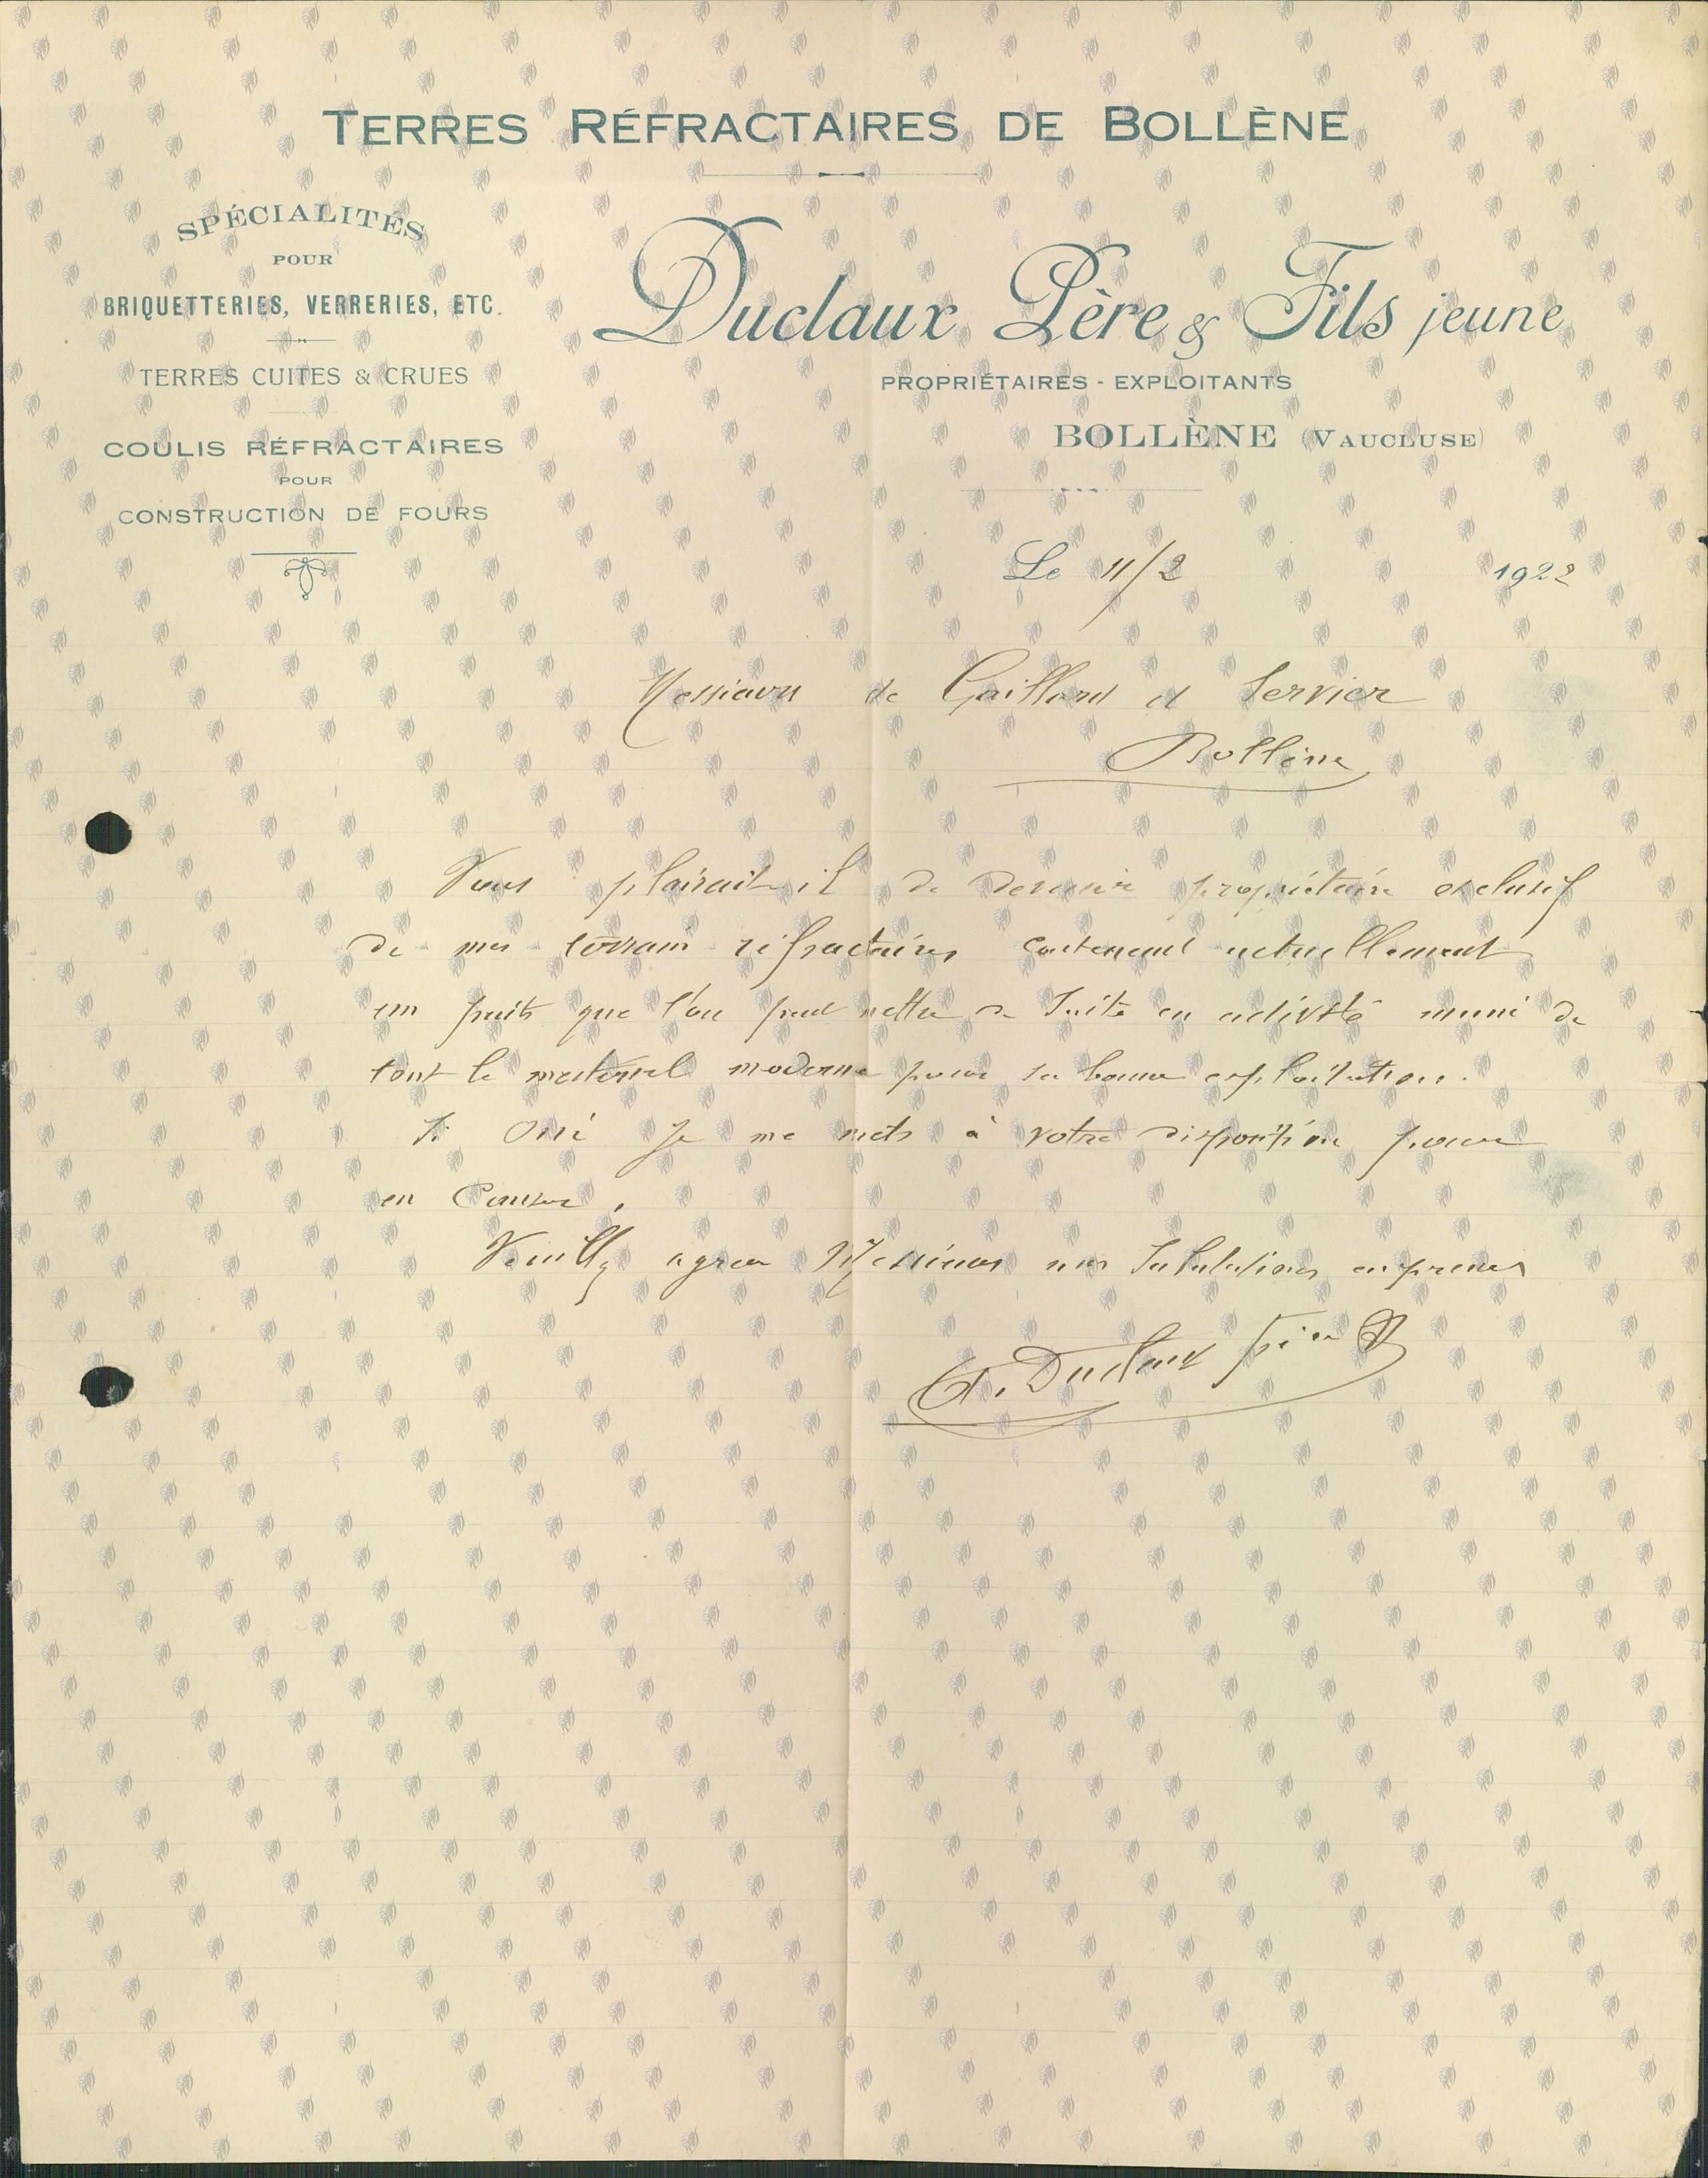 TERRES RÉFRACTAIRES DE BOLLÈNE
SPÉCIALITÉS
POUR
BRIQUETTERIES, VERRERIES, ETC.
TERRES CUITES & CRUES
COULIS RÉFRACTAIRES
POUR
CONSTRUCTION DE FOURS
Duclaux Père & Fils jeune
PROPRIÉTAIRES - EXPLOITANTS
BOLLÈNE (VAUCLUSE)
Le 11/2 1922
Messieurs de Gaillard et Servier
Bollène
Vous plairait-il de devenir propriétaire exclusif
de mes terrain réfractaires contenant actuellement
un puits que l'on peut mettre de suite en activité muni de
tout le matériel moderne pour sa bonne exploitation.
Si oui je me mets à votre disposition pour
en causer.
Veuillez agréer Messieurs mes salutations empressées
Duclaux père